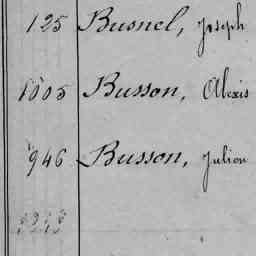 125 Busnel, Joseph
1005 Busson, Alexis
946 Busson, Julien